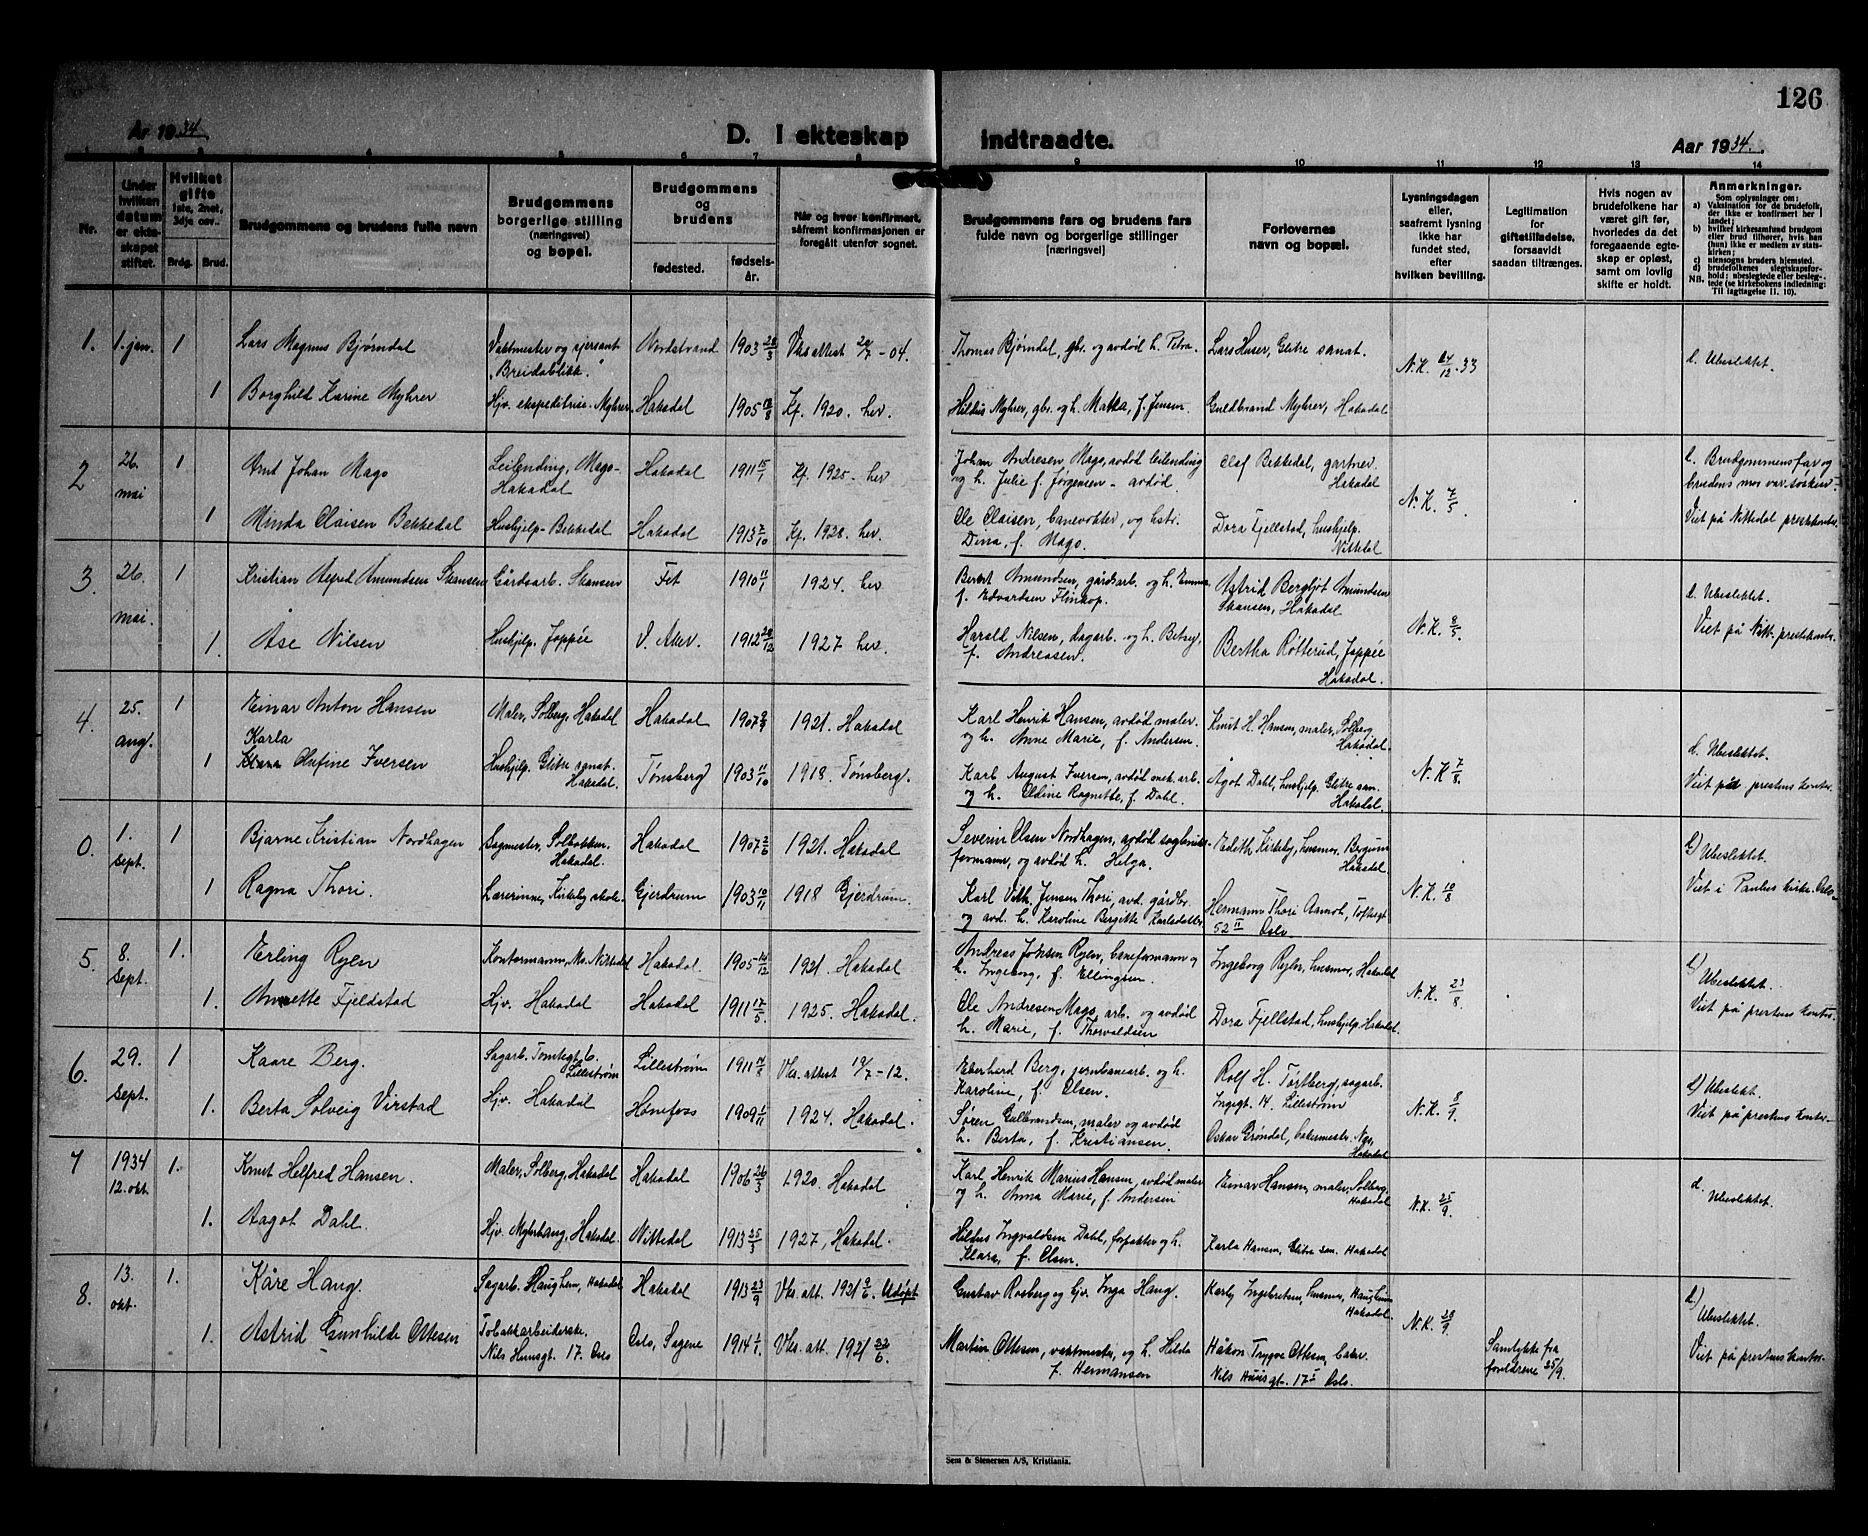 126
År 1934.
D. I ekteskap
indtraadte.
Aar 1934.
1 2 3 4 5 6 7 8 9 10 11 12 13 14
Nr.
Under hvilken datum er ekteskapet stiftet.
Hvilket gifte 1ste, 2net, 3dje osv..
Brdg.
Brud.
Brudgommens og brudens fulle navn
Brudgommens borgerlige stilling (næringsvei) og bopel.
Brudgommens og brudens
fødested.
fødselsår.
Når og hvor konfirmert, såfremt konfirmasjonen er foregått utenfor sognet.
Brudgommens fars og brudens fars fulde navn og borgerlige stillinger [næringsvei]
Forlovernes navn og bopæl.
Lysningsdagen eller, saafremt lysning ikke har fundet sted, efter hvilken bevilling.
Legitimation for giftetilladelse, forsaavidt saadan tiltrænges.
Hvis nogen av brudefolkene har været gift før, hvorledes da det foregaaende egteskap er opløst, samt om lovlig skifte er holdt.
Anmerkninger.
Som oplysninger om:
a) Vaksination for de brudefolk, der ikke er konfirmert her i landet;
b) hvilket kirkesamfund brudgom eller brud tilhører, hvis han (hun) ikke er medlem av statskirken;
c) utensogns bruders hjemsted.
d) brudefolkenes slegtskapsforhold: ubeslegtede eller beslegtede (se kirkebokens indledning: Til iagttagelse II. 10).
NB.
1. 1. jan. 1 Lars Magnus Bjørndal Vaktmester og sjersant "Breidablikk." Nordstrand 1903 28/3 Vks attest 20/7 - 04. Thomas Bjørndal, gbr. og avdød h. Petra. Lars Huser, Glitre sanat. N.K. 14/12. 33 d. Ubeslektet.
1 Borghild Karine Myhrer Hjv. ekspeditrise. Myhrer Hakadal 1905 18/8 Kf. 1920. her. Hildus Myhrer, gbr. og h. Matha, f. Jensen. Guldbrand Myhrer, Hakadal
2 26. mai 1 Arnt Johan Mago Leilending, Mago-Hakadal Hakadal 1911 15/1 Kf. 1925. her Johan Andresen, Mago, avdød leilending og h. Julie f. Jørgensen - avdød. Olaf Bekkedal, gartner. Hakadal N.K. 7/5 d. Brudgommens far og brudens mor var søsken
1 Minda Claisen Bekkedal Hushjelp - Bekkedal Hakadal 1913 7/10 Kf. 1928. her. Ole Claisen, banevokter, og hstr. Dina, f. Mago. Dora Fjellstad, hushjelp. Nittedal Viet på Nittedal prestkontor
3. 26. mai. 1 Kristian Alfred Amundsen Skansen Gårdsarb. Skansen Fet 1910 11/1 1924. her Bernt Amundsen, gårdsarb. og h. Emma f. Edvardsen Flinkop. Astrid Bergljot Amundsen Skansen, Hakadal N.K. 8/5. d. Ubeslektet.
1. Åse Nilsen Hushjelp. Joppée V. Aker. 1912 29/12 1927 her. Harald Nilsen, dagarb. og h. Betsy, f. Andreasen. Bertha Røtterud, Joppée Hakadal. Viet på Nitt. prestekontor.
4. 25. aug. 1 Einar Anton Hansen Maler, Solberg, Hakadal Hakadal 1907 9/9 1921. Hakadal Karl Henrik Hansen, avdød maler. og h. Anne Marie, f. Andersen. Knut H. Hansen, maler, Solberg Hakadal. N.K 7/8. d. Ubeslektet.
1 Karla Olufine Iversen Hushjelp. Glitre sanat. Hakadal. Tønsberg 1903 11/10 1918. Tønsberg. Karl August Iversen, avdød mek. arb. og h. Oldine Ragnette, f. Dahl. Ågot Dahl, hushjelp. Glitre san. Hakadal. Viet på prestens kontor.
0. 1. sept. 1 Bjarne Kristian Nordhagen Sagmester, Solbakken. Hakadal. Hakadal 1907 2/6 1921. Hakadal Severin Olsen Nordhagen, avdød sagbruksformann, og avdød h. Helga. Edith Kirkeby, husmor. Bergum Hakadal. N.K. 10/8 d) Ubeslektet.
1 Ragna Thori. Lærerinne, Kirkeby skole. Gjerdrum 1903 10/11 1918 Gjerdrum. Karl Vilh. Jensen Thori, avd. gårdbr. og avd. h. Karoline Bergitte Karlsdatter Hermann Thori Aamot, Toftesgt 52 II Oslo. Viet i Paulus kirke. Oslo.
5. 8. sept. 1. Erling Ryen Kontormann, Mo. Nittedal Hakadal. 1905 14/12 1921. Hakadal Andreas Johsen Ryen, baneformann og h. Ingeborg, f. Ellingsen. Ingeborg Ryen, husmor, Hakadal N.K. 23/8. d) Ubeslektet.
1. Annette Fjeldstad Hjv. Hakadal Hakadal 1911 17/5. 1925. Hakadal. Ole Andresen Mago, arb. og avdød h. Marie, f. Thorvaldsen Dora Fjellstad, hushjelp, Hakadal Viet på prestens kontor.
6. 29. sept. 1 Kaare Berg. Sagarb. Tomtegt. 6. Lillestrøm Lillestrøm 1911 14/8 Vks. attest 19/7 - 12. Eberhard Berg, jernbanearb. og h. Karoline, f. Olsen. Rolf H. Tørtberg, sagarb. Ingegt. 14. Lillestrøm N.K. 8/9. d) Ubeslekt.
1. Berta Solveig Virstad Hjv. Hakadal Hønefoss 1909 1/11 1924. Hakadal. Søren Gulbrandsen, maler og avdød h. Berta, f. Kristiansen. Oskar Grøndal, bakermestr. Hakadal Viet på prestens kontor.
7 1934 12. okt. 1. Knut Helfred Hansen. Maler, Solberg, Hakadal Hakadal 1906 26/3 1920. Hakadal Karl Henrik Marius Hansen, avdød maler og h. Anna Marie, f. Andersen Einar Hansen, maler, Solberg. Hakadal N.K. 25/9. d. Ubeslektet.
1. Aagot Dahl. Hjv. Myhrhaug, Hakadal. Nittedal 1913 25/3 1927, Hakadal. Hildus Ingvaldsen Dahl, forpakter og h. Klara, f. Olsen. Karla Hansen, Glitre san. Hakadal
8. 13. okt. 1. Kåre Haug. Sagarb. Haugheim, Hakadal Hakadal 1913 23/9 Vks. att. 1921 9/6. Udøpt Gustav Rosberg og hjv. Inga Haug. Karly Ingebretsen, husmor, Haugheim Hakadal. N.K. 28/9. d) Ubeslektet.
1. Astrid Gunhilde Ottesen Tobakkarbeiderske. Nils Huusgt. 17. Oslo Oslo, Sagene 1914 1/1. Vks. att. 1921 22/6. Martin Ottesen, vaktmester, og h. Hilda f. Hermansen Håkon Trygve Ottesen, baker. Nils Huusgt. 17 Oslo. Samtykke fra foreldrene 25/9. Viet på prestens kontor.
Sem & Stenersen A/S, Kristiania.